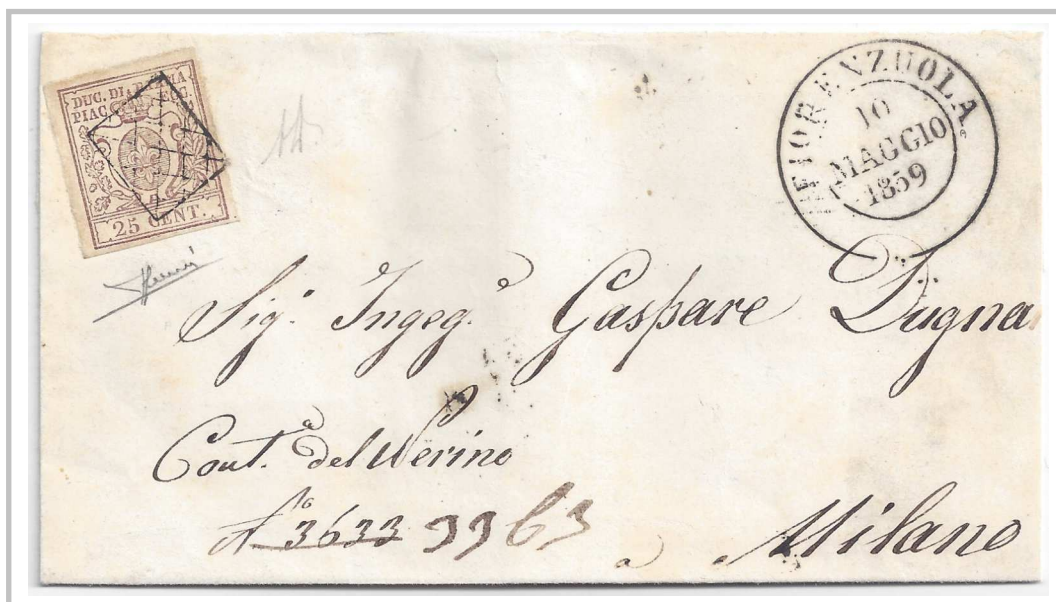 DUC. DI PIAC. ECC.
25 CENT.
FIORENZUOLA
10
MAGGIO
1859
Sig. Ingeg.e Gaspare Dugna
Cont.a del Nerino
N.o 3633 3963
Milano